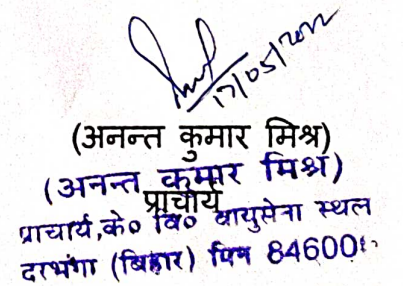 17/05/2012
(अनन्त कुमार मिश्र)
(अनन्त कुमार मिश्र)
प्राचार्य
प्राचार्य, के० वि० वायुसेना स्थल
दरभंगा (बिहार) पिन 84600